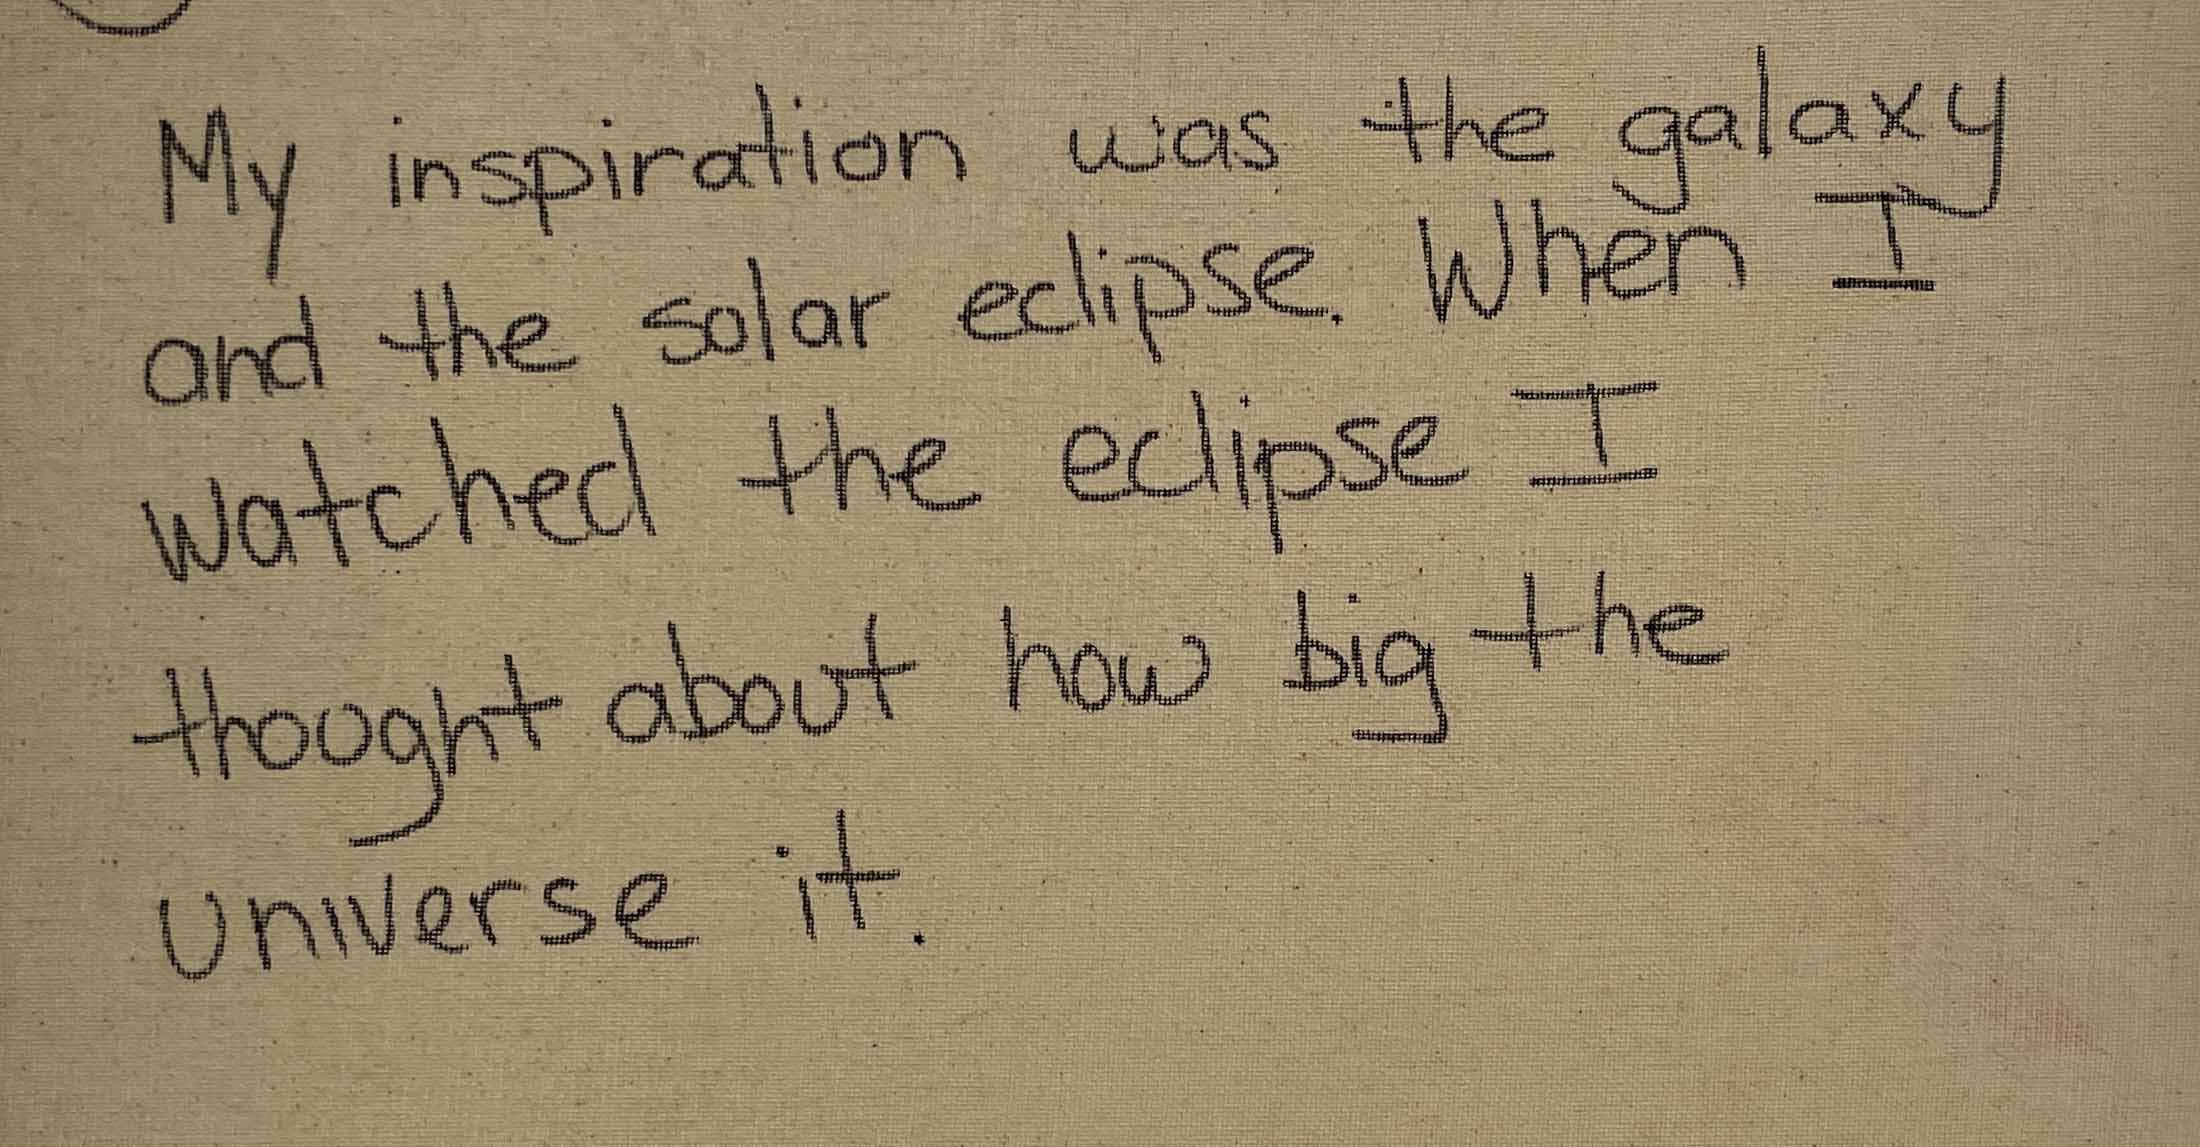 My inspiration was the galaxy
and the solar eclipse. When I
watched the eclipse I
thought about how big the
universe it.